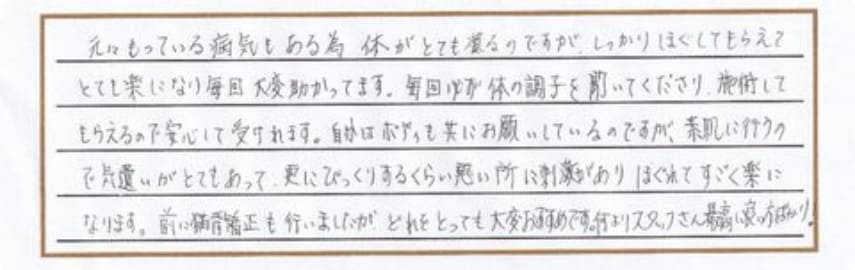 元々もっている病気もある為 体がとても凝るのですが、しっかりほぐしてもらえて
とても楽になり毎回 大変助かってます。毎回 体の調子を聞いてくださり、施術して
もらえるので安心して受けれます。自分はボディも共にお願いしているのですが、素肌に行うの
で気遣いがとてもあって、更にびっくりするくらい悪い所に刺激があり ほぐれてすごく楽に
なります。前に猫背矯正も行いましたが どれをとっても大変おすすめです。何よりスタッフさん最高に良い方ばかり!